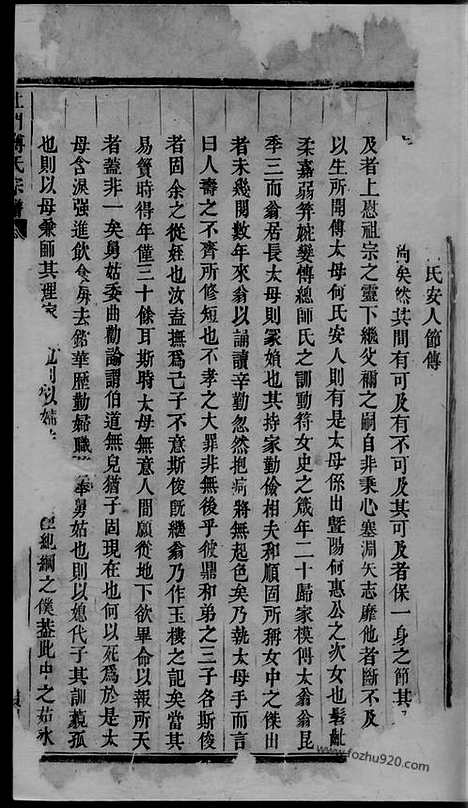 氏安人節傳
矣然其間有可及有不可及其可及者保一身之節其
及者上慰祖宗之靈下繼父禰之嗣自非秉心塞淵矢志靡他者斷不及
以生所聞傳太母何氏安人則有是太母係出暨陽何惠公之次女也髫齓
柔嘉弱笄婉孌傳總師氏之訓動符女史之箴年二十歸家模傅太翁翁昆
季三而翁居長太母則冢婦也其持家勤儉相夫和順固所稱女中之傑出
者未幾閱數年來翁以誦讀辛勤忽然抱病將無起色矣乃執太母手而言
曰人壽之不齊所修短也不孝之大罪非無後乎彼鼎和弟之三子名斯俊
者固余之從姪也汝盍撫爲己子不意斯俊既繼翁乃作玉樓之記矣當其
易簀時得年僅三十餘耳斯時太母無意人間願從地下欲畢命以報所天
者蓋非一矣舅姑委曲勸諭謂伯道無兒猶子固現在也何以死爲於是太
母含淚強進飲食屏去鉛華歷勤婦職奉舅姑也則以媳代子其訓藐孤
也則以母兼師其理家
紀綱之僕蓋此中之茹冰
氏宗譜
www.fozhu920.com